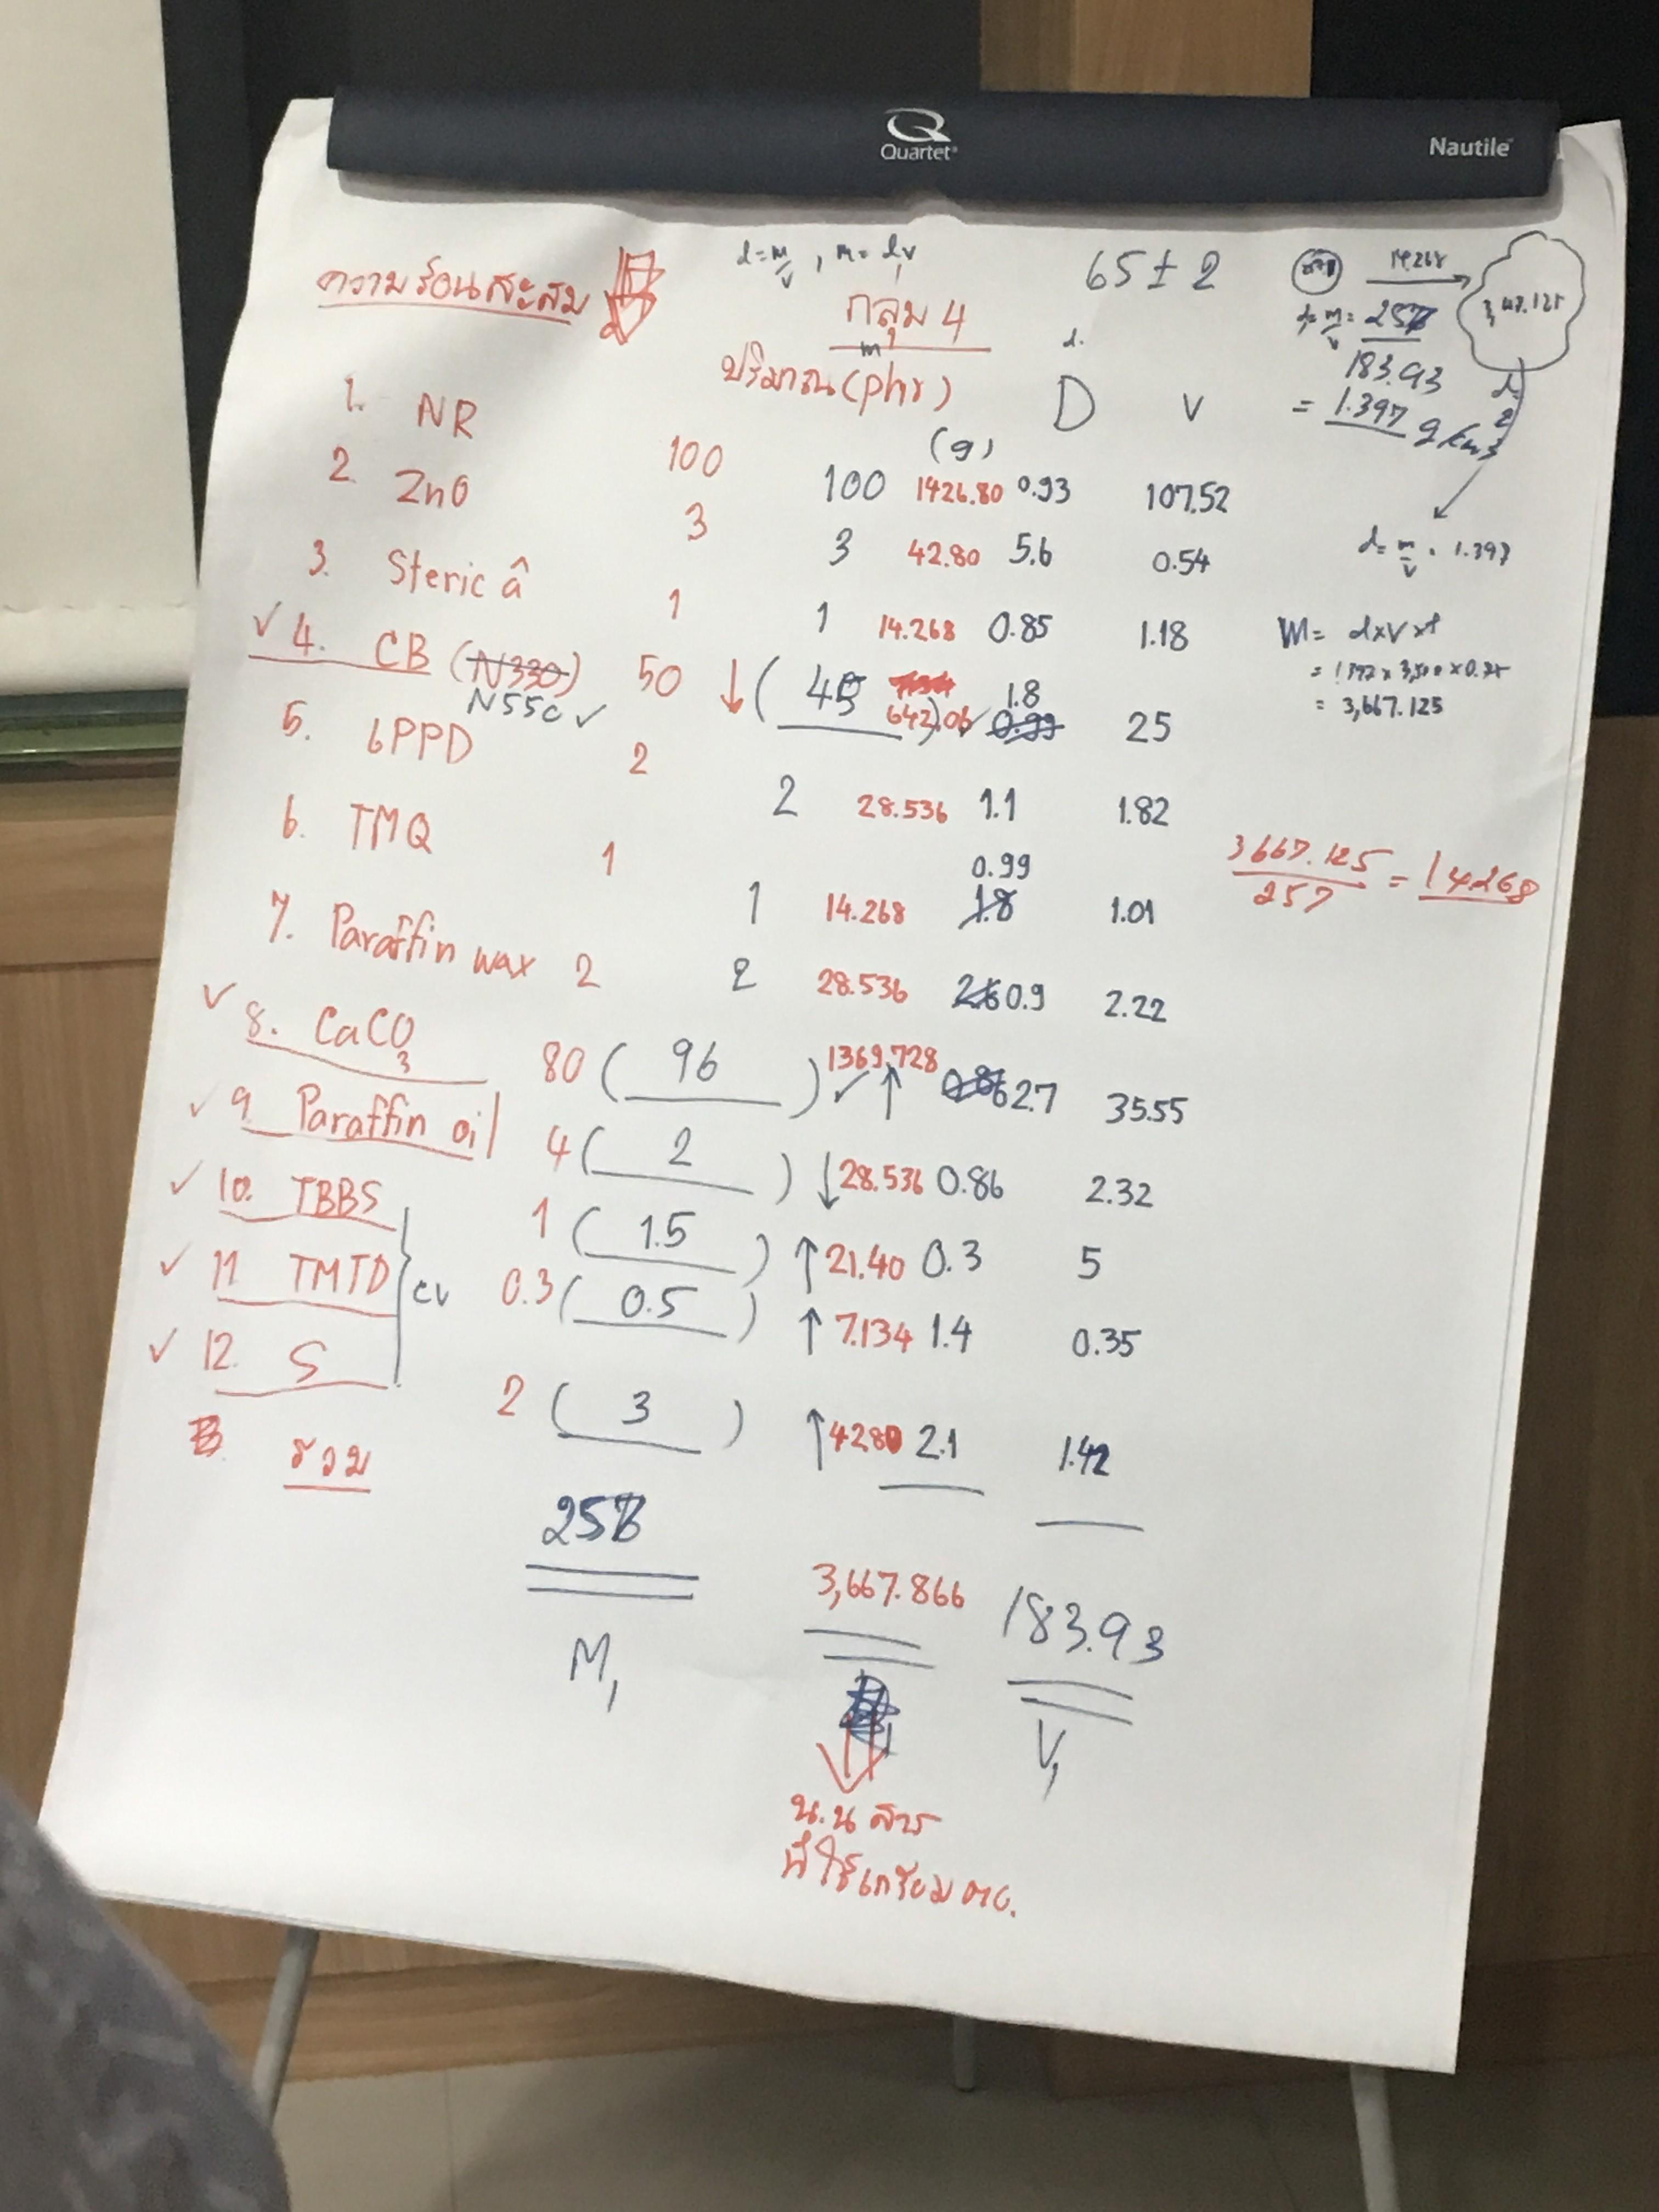 Quartet
Nautile
ความร้อนสะสม
d=m/v , m=dv
65±2
14.268
กลุ่ม 4
d=m/v = 257
183.93
= 1.397 g/cm3
m d.
ปริมาณ (phr) D V
(g)
1. NR 100 100 1426.80 0.93 107.52
2. ZnO 3 3 42.80 5.6 0.54
d=m/v = 1.397
3. Steric â 1 1 14.268 0.85 1.18
✓ 4. CB (N330) 50 ↓ ( 45 ) 642.06 ✓ 1.8 0.99 25
N550 ✓
W = dxVx
= 3,667.125
5. 6PPD 2 2 28.536 1.1 1.82
6. TMQ 1 1 14.268 1.8 0.99 1.01
3667.125/257 = 14268
7. Paraffin wax 2 2 28.536 0.9 2.22
✓ 8. CaCO3 80 ( 96 ) ✓ ↑ 1369.728 2.7 35.55
✓ 9. Paraffin oil 4 ( 2 ) ↓ 28.536 0.86 2.32
✓ 10. TBBS 1 ( 1.5 ) ↑ 21.40 0.3 5
✓ 11 TMTD 0.3 ( 0.5 ) ↑ 7.134 1.4 0.35
CV
✓ 12. S 2 ( 3 ) ↑ 4280 2.1 1.42
รวม
257
3,667.866
183.93
M1
V1
น.น สาร
ที่ใช้เตรียม ตย.